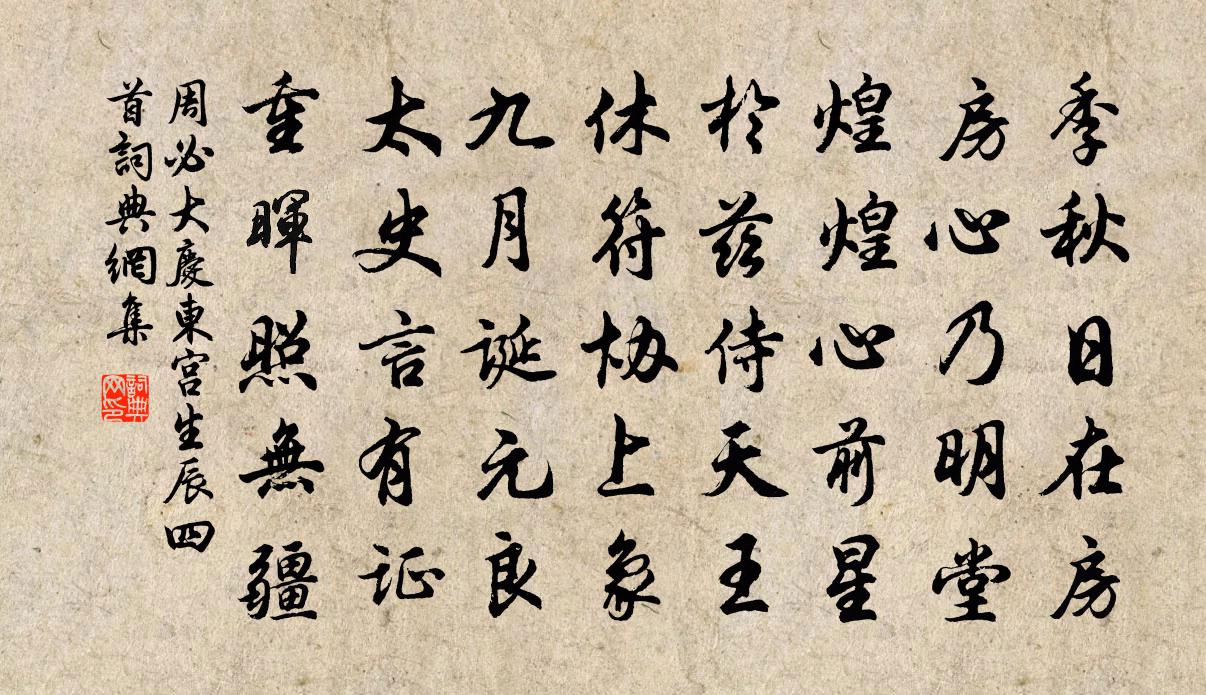 季秋日在房
房心乃明堂
煌煌心前星
於茲侍天王
休符協上象
九月誕元良
太史言有証
重暉照無疆
周必大慶東宮生辰四
首詞典網集
詞典网印